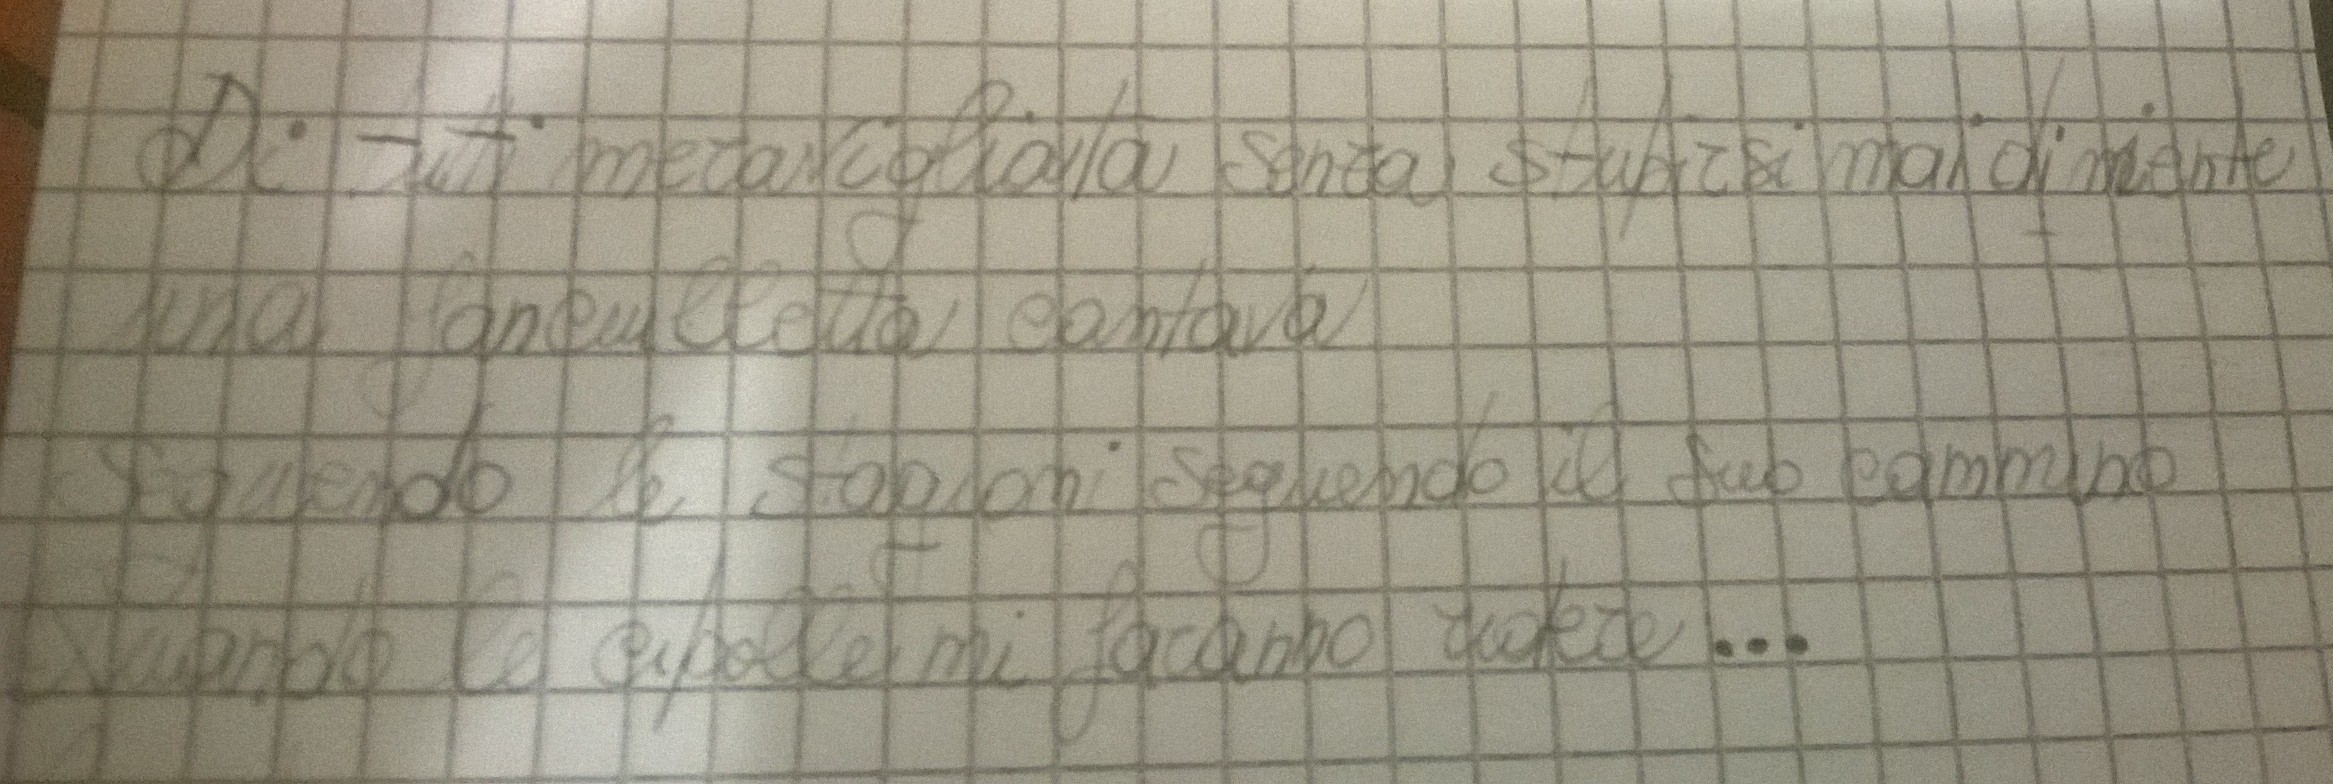 Di tutti meravigliata senza stupirsi mai di niente
una fanciulletta cantava
seguendo le stagioni seguendo il suo cammino
Quando le cipolle mi faranno ridere...